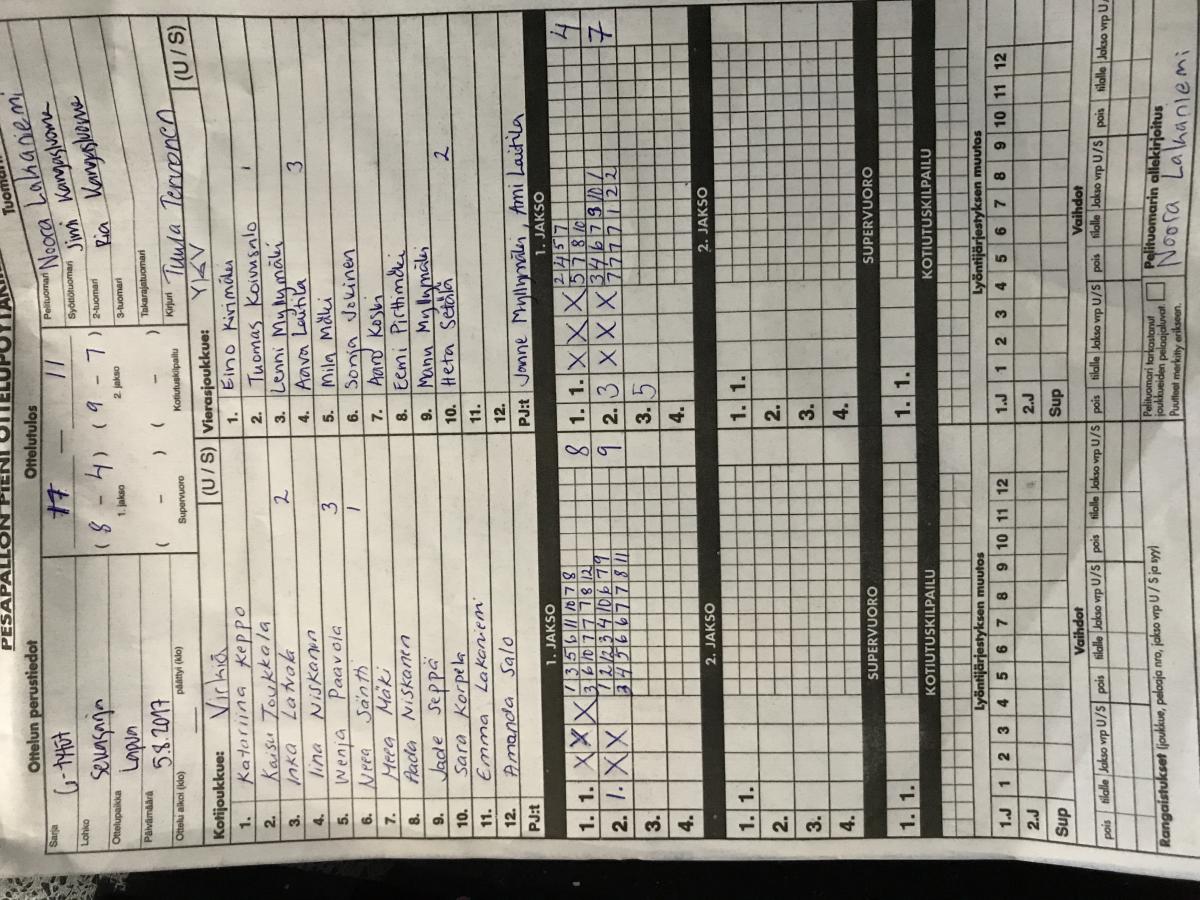 PESÄPALLON PIENI OTTELUPÖYTÄKIRJA
Ottelun perustiedot
Sarja G-tytöt
Lohko Seurasarja
Ottelupaikka Lapua
Päivämäärä 5.8.2017
Ottelu alkoi (klo) päättyi (klo)
Ottelutulos
17 — 11
( 8 - 4 ) ( 9 - 7 )
1. jakso 2. jakso
( - ) ( - )
Supervuoro Kotiutuskilpailu
Pelituomari Noora Lakaniemi
Syöttötuomari Jimi Kangasluoma
2-tuomari Pia Kangasluoma
3-tuomari
Takarajatuomari
Kirjuri Tuula Teronen
Kotijoukkue: Virkiä (U / S)
1. Katariina Keppo
2. Kaisu Toukkala
3. Inka Latvala 2
4. Iina Niskanen
5. Wenja Paavola 3
6. Neea Säntti 1
7. Meea Mäki
8. Aada Niskanen
9. Jade Seppä
10. Sara Korpela
11. Emma Lakaniemi
12. Amanda Salo
PJ:t
Vierasjoukkue: YKV (U / S)
1. Eino Kirimäki
2. Tuomas Koivusalo 1
3. Lenni Myllymäki
4. Aava Laitila 3
5. Mila Mäki
6. Sonja Jokinen
7. Aaro Koski
8. Eemi Pirttimäki
9. Manu Myllymäki
10. Heta Setälä 2
11.
12.
PJ:t Janne Myllymäki, Ami Laitila
1. JAKSO
1. 1. X X X 1 3 5 6 11 10 7 8 8
3 6 10 7 7 7 8 12
2. 1. X X 1 2 12 3 4 10 6 7 9 9
3 4 5 6 6 7 7 8 11
3.
4.
1. JAKSO
1. 1. X X X 2 4 5 7 4
5 7 8 10
2. 3 X X X 3 4 6 7 9 10 1 7
7 7 7 7 1 2 2
3. 5
4.
2. JAKSO
1. 1.
2.
3.
4.
2. JAKSO
1. 1.
2.
3.
4.
SUPERVUORO
1. 1.
SUPERVUORO
1. 1.
KOTIUTUSKILPAILU
KOTIUTUSKILPAILU
Lyöntijärjestyksen muutos
1.J 1 2 3 4 5 6 7 8 9 10 11 12
2.J
Sup
Lyöntijärjestyksen muutos
1.J 1 2 3 4 5 6 7 8 9 10 11 12
2.J
Sup
Vaihdot
pois tilalle Jakso vrp U/S pois tilalle Jakso vrp U/S pois tilalle Jakso vrp U/S
Vaihdot
pois tilalle Jakso vrp U/S pois tilalle Jakso vrp U/S pois tilalle Jakso vrp U/S
Rangaistukset (joukkue, pelaaja nro, jakso vrp U / S ja syy)
Pelituomari tarkastanut
joukkueiden pelaajaluvat.
Puutteet merkitty erikseen.
Pelituomarin allekirjoitus
Noora Lakaniemi